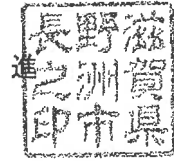 滋賀県
野洲市
長之印
進